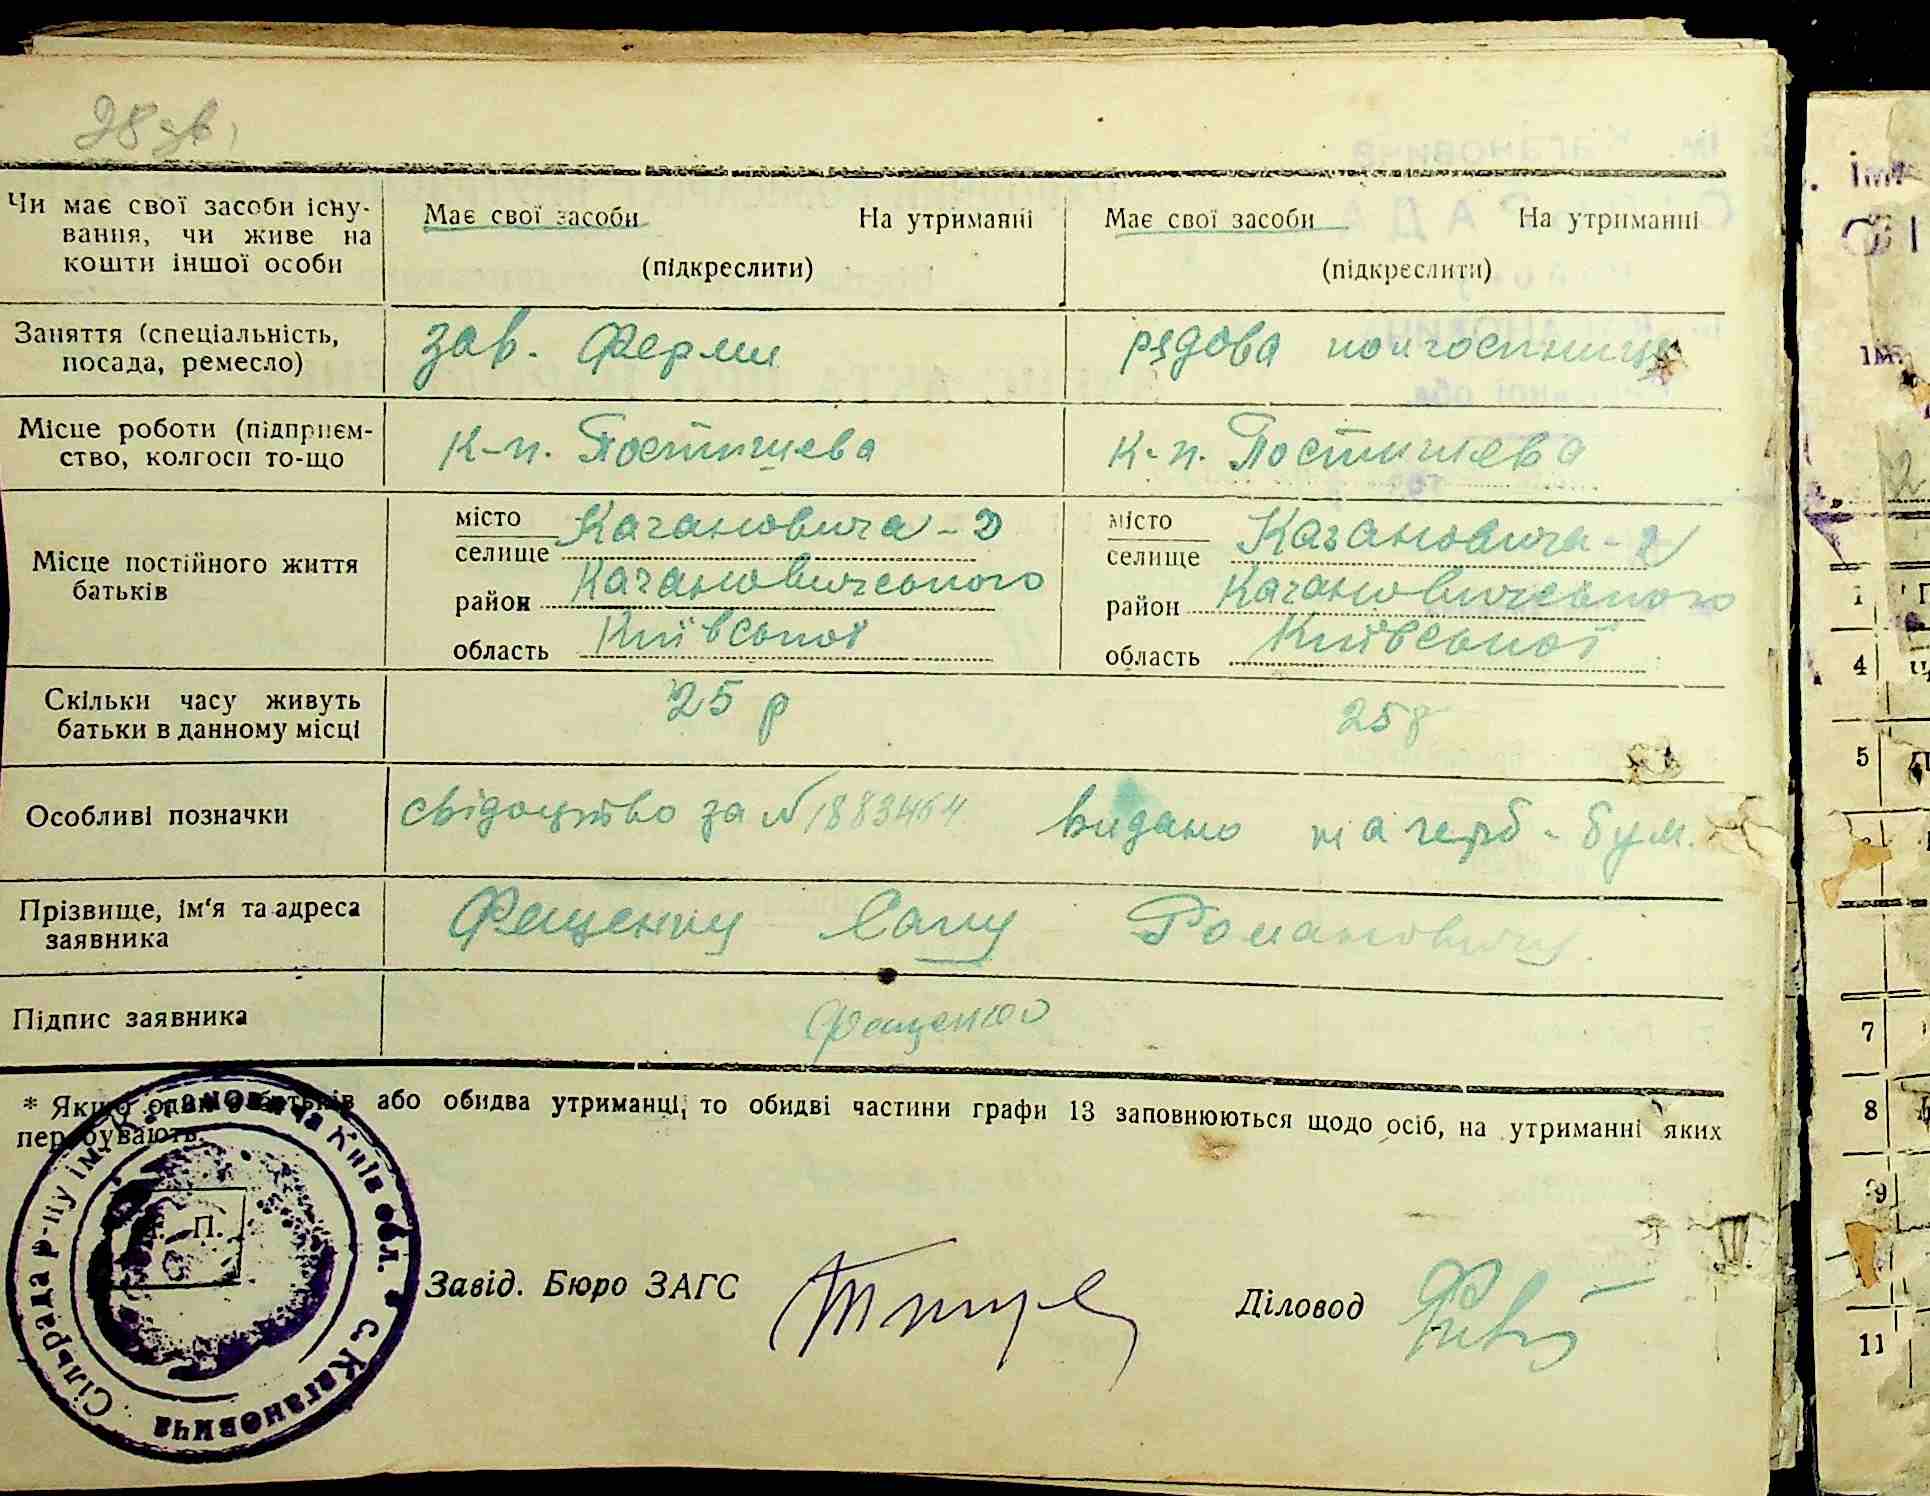 28 зв.
Чи має свої засоби існу-
вання, чи живе на
кошти іншої особи
Має свої засоби На утриманні
(підкреслити)
Має свої засоби На утриманні
(підкреслити)
Заняття (спеціальність,
посада, ремесло)
зав. Ферми
рядова колгоспниця
Місце роботи (підприєм-
ство, колгосп то-що
к-п. Постишева
к-п. Постишева
Місце постійного життя
батьків
місто
селище
Кагановича-2
район Кагановичського
область Київської
місто
селище
Кагановича-2
район Кагановичського
область Київської
Скільки часу живуть
батьки в данному місці
25 р
25 р
Особливі позначки
свідоцтво за № 1883454 видано на герб-бум.
Прізвище, ім'я та адреса
заявника
Фещенку Романовичу
Підпис заявника
* Якщо один з батьків або обидва утриманці, то обидві частини графи 13 заповнюються щодо осіб, на утриманні яких
перебувають.
Сільрада р-ну ім. Кагановича Київ обл. с. Кагановича
П.
Завід. Бюро ЗАГС
Діловод
ім.
1
4
5
7
8
9
11